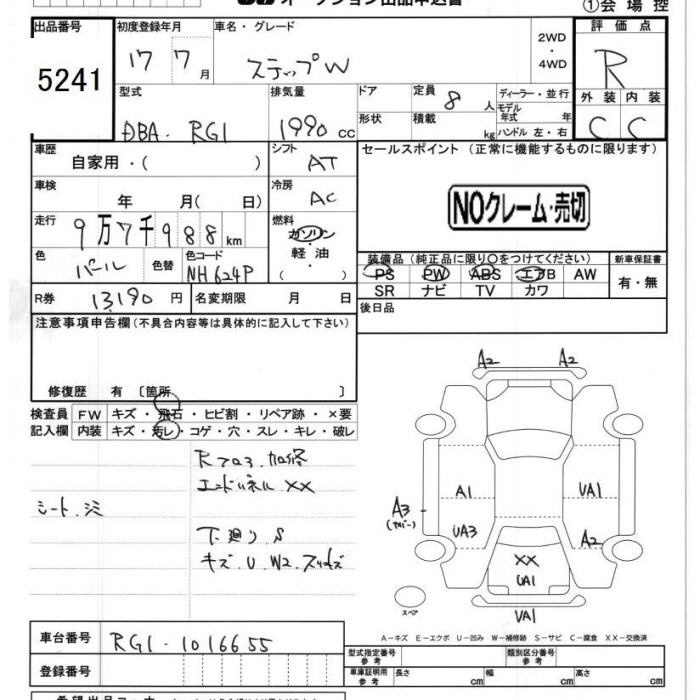 オークション出品申込書 ①会場控
出品番号 初度登録年月 車名・グレード 2WD・4WD 評価点
5241 17 7月 ステップW R
型式 排気量 ドア 定員 8人 ディーラー・並行 外装 内装
DBA・RG1 1990cc 形状 積載 kg モデル年式 年 ハンドル 左・右 C C
車歴 自家用・( ) シフト AT セールスポイント (正常に機能するものに限ります)
車検 年 月( 日) 冷房 AC NOクレーム・売切
走行 9万7千988km 燃料 ガソリン・軽油・( )
色 パール 色替 色コード NH624P
装備品 (純正品に限り〇をつけてください) 新車保証書
PS PW ABS エアB AW 有・無
SR ナビ TV カワ
R券 13,190円 名変期限 月 日 後日品
注意事項申告欄 (不具合内容等は具体的に記入して下さい)
修復歴 有 〔箇所 〕
検査員 FW キズ・飛石・ヒビ割・リペア跡・×要
記入欄 内装 キズ・汚レ・コゲ・穴・スレ・キレ・破レ
エンドパネル XX
シート、シミ
下廻り、S
キズ.U.W2.
A2 A2
A1 UA1
A3
UA3 A2
XX
UA1
スペア UA1
A−キズ E−エクボ U−凹み W−補修跡 S−サビ C−腐食 XX−交換済
車台番号 RG1-1016655
型式指定番号 参考 類別区分番号 参考
登録番号 車庫証明用 参考 長さ cm 幅 cm 高さ cm